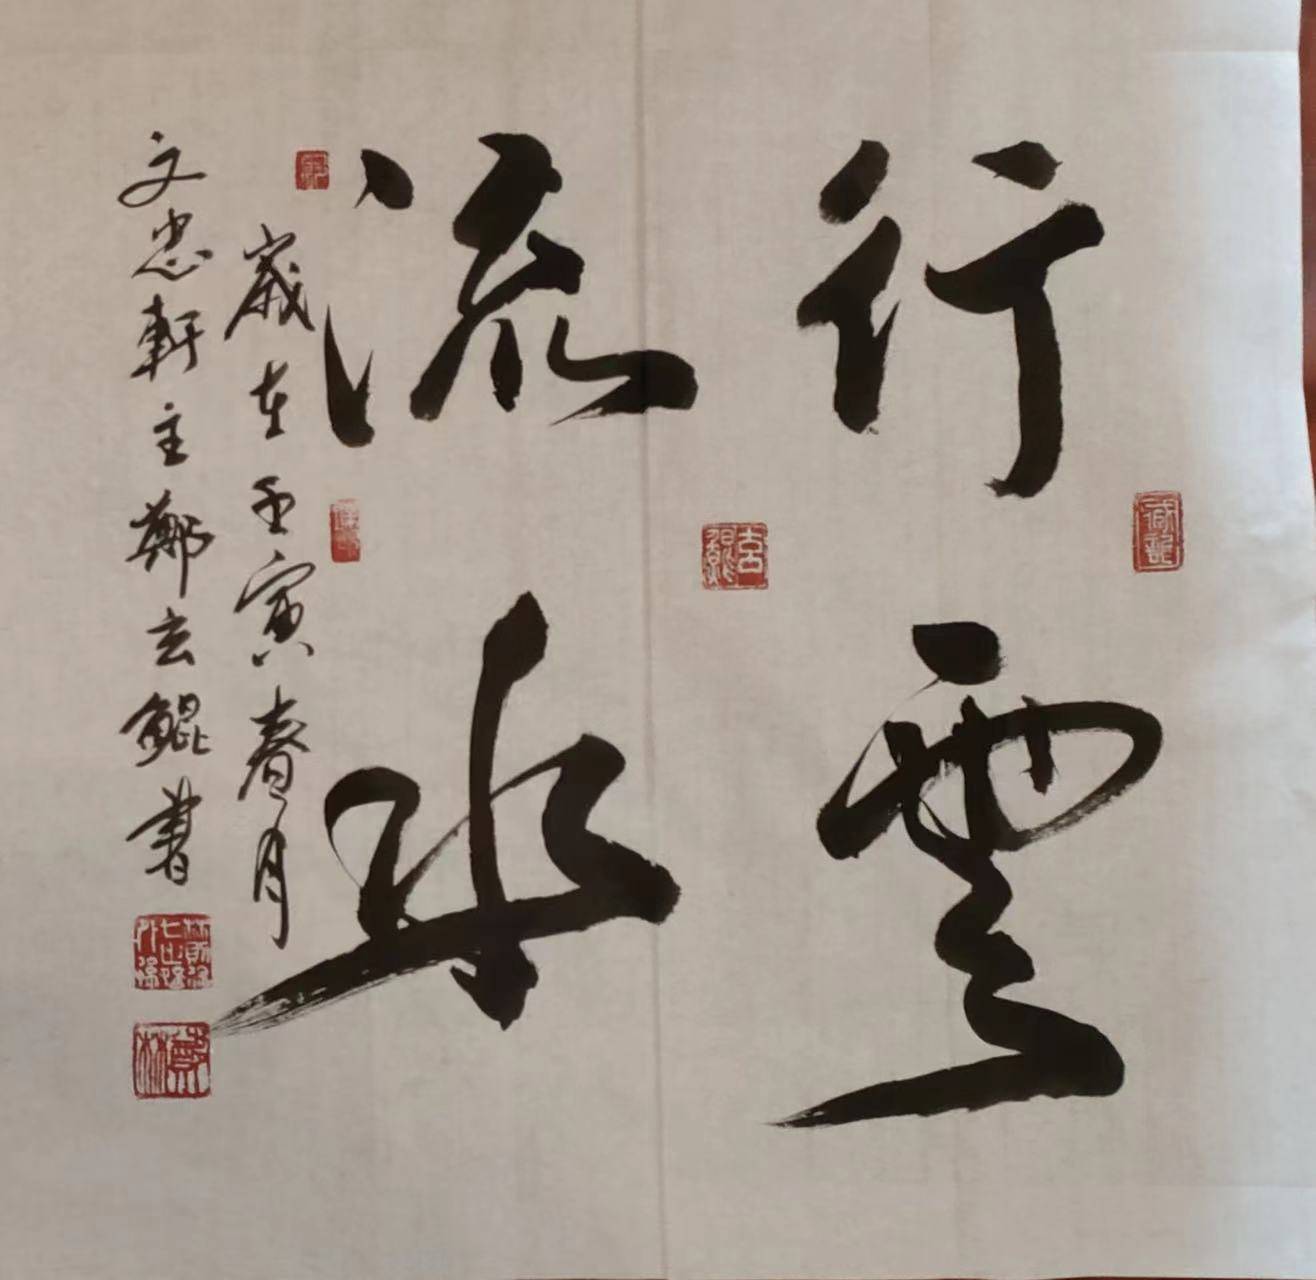 行雲
流水
歲在壬寅春月
文忠軒主鄭玄鯤書